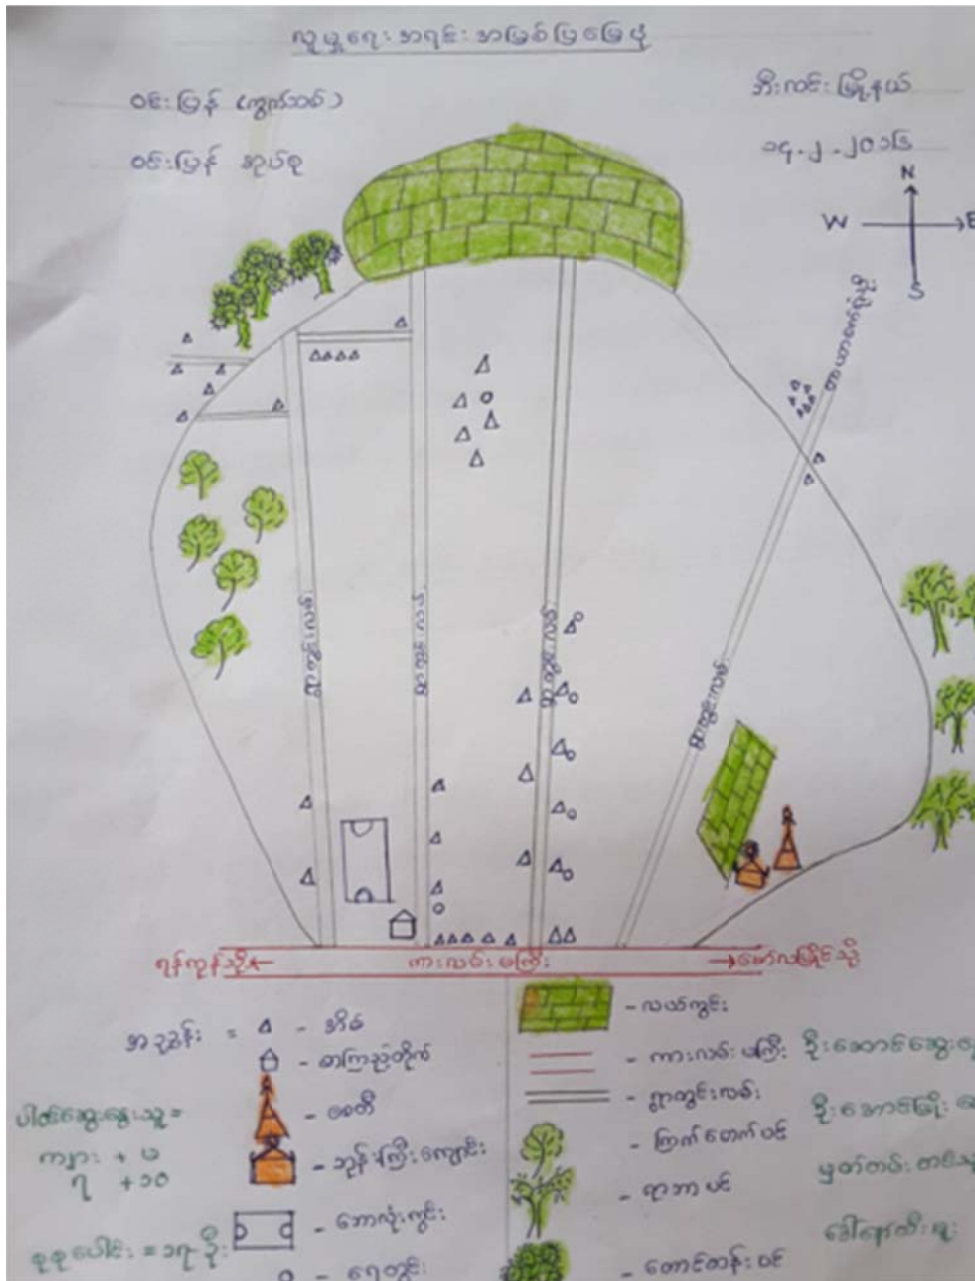 လူမှုရေးအရင်းအမြစ်ပြမြေပုံ
ဝင်းပြန် (ကွက်သစ်)
ဘီးလင်းမြို့နယ်
ဝင်းပြန် အုပ်စု
၁၄.၂.၂၀၁၆
N
W E
S
ရွာတွင်းလမ်း
ရွာတွင်းလမ်း
ရွာတွင်းလမ်း
ရွာတွင်းလမ်း
ရန်ကုန်သို့ ←
ကားလမ်းမကြီး
→ မော်လမြိုင်သို့
အညွှန်း = - အိမ်
- ဓာကြည့်တိုက်
- စေတီ
- ဘုန်းကြီးကျောင်း
- ဘောလုံးကွင်း
- ရေတွင်း
ပါဝင်ဆွေးနွေးသူ =
ကျား + ၇
မ + ၁၀
စုစုပေါင်း = ၁၇ ဦး
- လယ်ကွင်း
- ကားလမ်းမကြီး
- ရွာတွင်းလမ်း
- ကြက်မောက်ပင်
- ရာဘာပင်
- တောင်တန်းပင်
ဦးဆောင်ဆွေး
ဦးအောင်မြိုး
မှတ်တမ်းတင်သူ